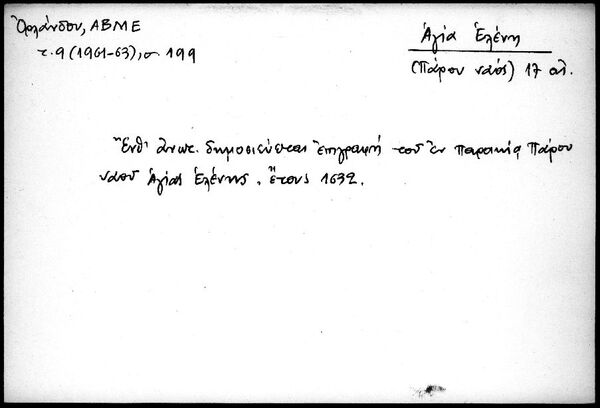 Ὀρλάνδου, ΑΒΜΕ
τ. 9 (1961-63), σ 199
Ἁγία Ἑλένη
(Πάρου ναός) 17 αἰ.
Ἔνθ' ἀνωτ. δημοσιεύεται ἐπιγραφή τοῦ ἐν Παροικίᾳ Πάρου
ναοῦ Ἁγίας Ἑλένης, ἔτους 1632.